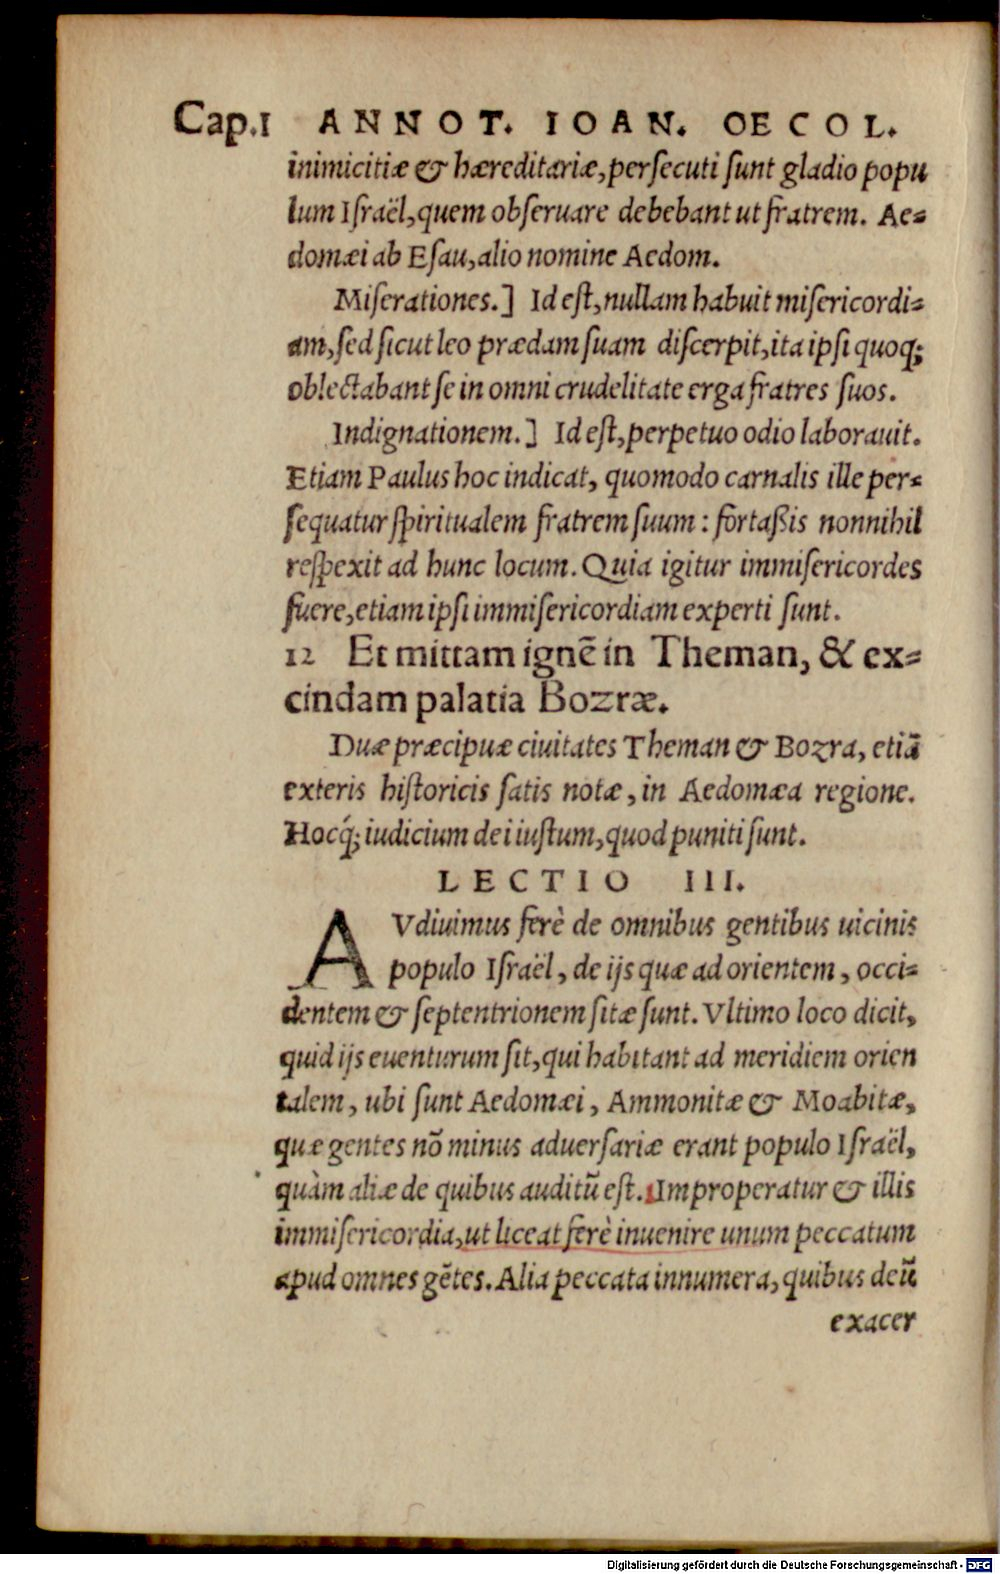 Cap.1 ANNOT. IOAN. OECOL.
inimicitiæ & hæreditariæ, persecuti sunt gladio popu
lum Israël, quem obseruare debebant ut fratrem. Ae-
domæi ab Esau, alio nomine Aedom.
Miserationes.] Id est, nullam habuit misericordi-
am, sed sicut leo prædam suam discerpit, ita ipsi quoq;
oblectabant se in omni crudelitate erga fratres suos.
Indignationem.] Id est, perpetuo odio laborauit.
Etiam Paulus hoc indicat, quomodo carnalis ille per-
sequatur spiritualem fratrem suum: fortaßis nonnihil
respexit ad hunc locum. Quia igitur immisericordes
fuere, etiam ipsi immisericordiam experti sunt.
12 Et mittam ignē in Theman, & ex-
cindam palatia Bozræ.
Duæ præcipuæ ciuitates Theman & Bozra, etiā
exteris historicis satis notæ, in Aedomæa regione.
Hocq́; iudicium dei iustum, quod puniti sunt.
LECTIO III.
AVdiuimus ferè de omnibus gentibus uicinis
populo Israël, de ijs quæ ad orientem, occi-
dentem & septentrionem sitæ sunt. Vltimo loco dicit,
quid ijs euenturum sit, qui habitant ad meridiem orien
talem, ubi sunt Aedomæi, Ammonitæ & Moabitæ,
quæ gentes nō minus aduersariæ erant populo Israël,
quàm aliæ de quibus auditū est. Improperatur & illis
immisericordia, ut liceat ferè inuenire unum peccatum
apud omnes gētes. Alia peccata innumera, quibus deū
exacer
Digitalisierung gefördert durch die Deutsche Forschungsgemeinschaft - DFG